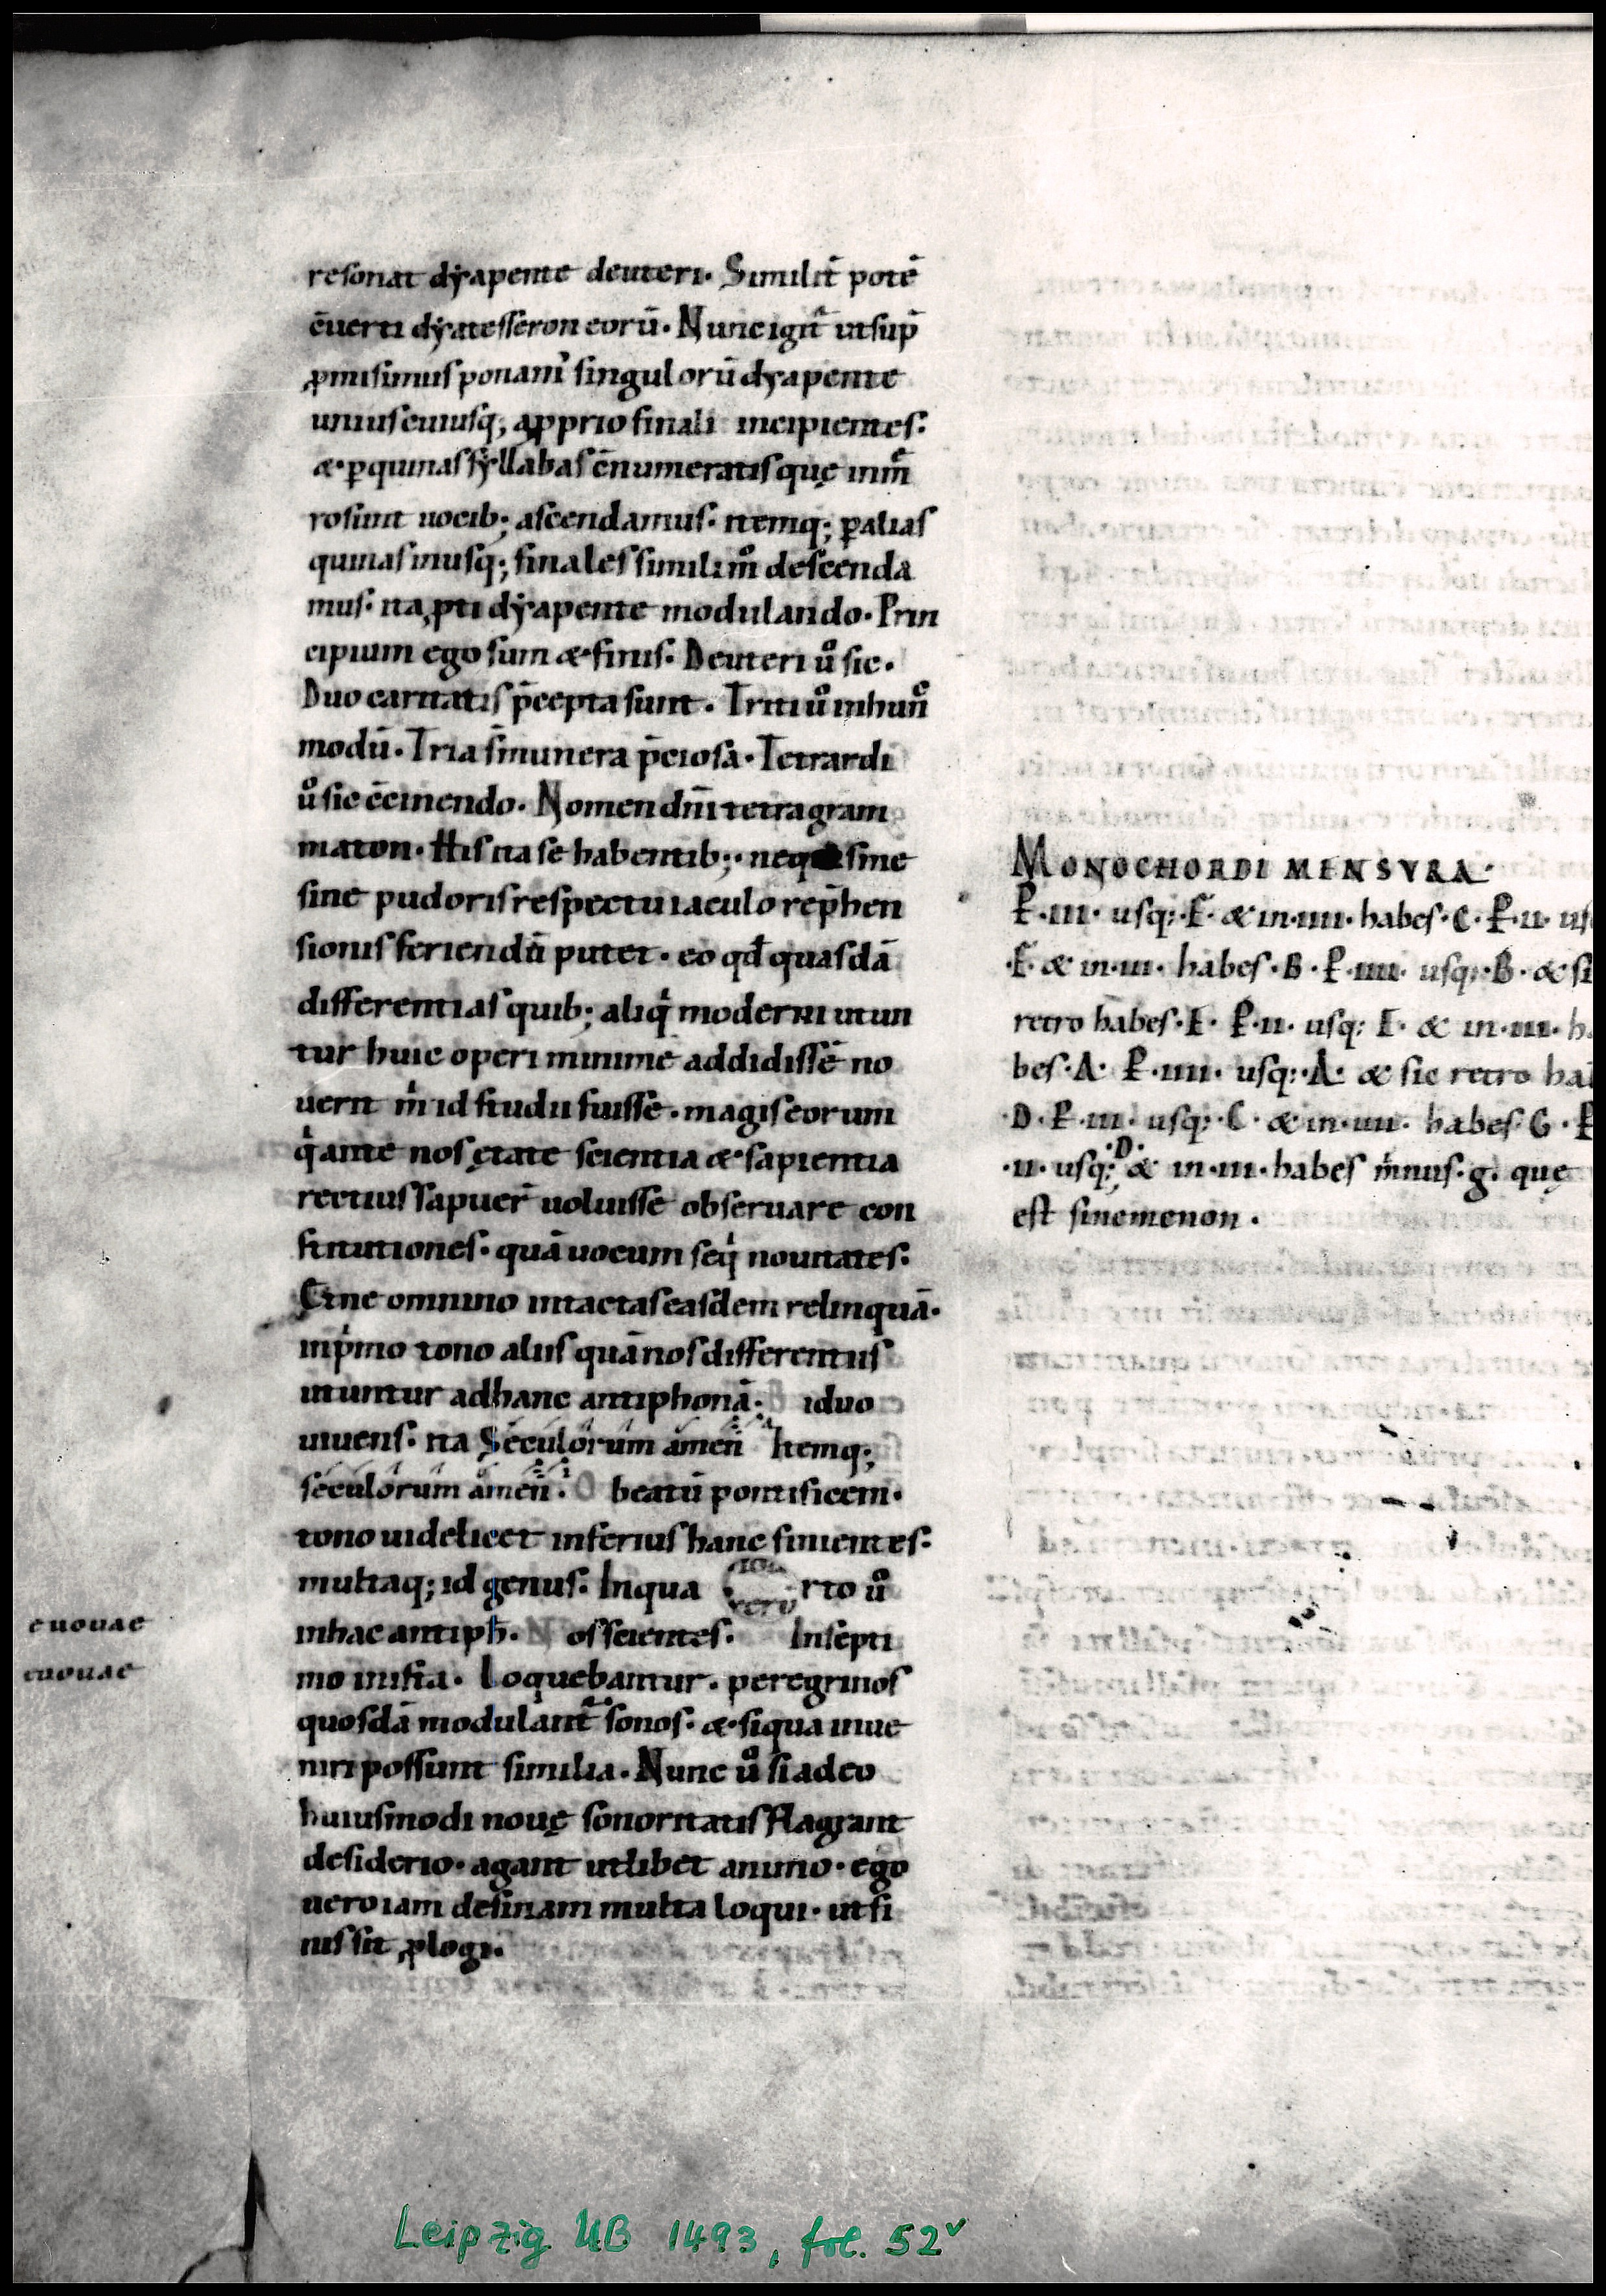 resonat dyapente deuteri. Similit̄ potē
c̄uerti dyatesseron eorū. Nunc igit̄ ut sup̄
p̱misimus ponam̄ singulorū dyapente
uniuscuiusq; a p̱prio finali incipientes.
& ꝑ quinas syllabas c̄numeratis quę inm̄
ro sunt uocib; ascendamus. itemq; ꝑ alias
quinas inusq; finales simili m̊ descenda
mus. ita ꝓti dyapente modulando. Prin
cipium ego sum & finis. Deuteri ů sic.
Duo caritatis p̄cepta sunt. Triti ů in hunc
modū. Tria s̄ munera p̄ciosa. Tetrardi
ů sic c̄cinendo. Nomen dn̄i tetragram
maton. His ita se habentib;. neq sine
sine pudoris respectu iaculo rep̄hen
sionis feriendū putet. eo qd̄ quasdā
differentias quib; aliq̇ moderni utun
tur huic operi minime addidissē no
uerit m̊ id studii fuisse. magis eorum
q̇ ante nos ętate scientia & sapientia
rectius sapuer̄ uoluisse obseruare con
stitutiones. quā uocum seq̇ nouitates.
Et ne omnino intactas easdem relinquā.
in ṗmo tono aliis quā nos differentiis
utuntur ad hanc antiphonā. B iduo
uiuens. ita Seculorum amen Itemq;
seculorum amen. O beatū pontificem.
tono uidelicet inferius hanc finientes.
multaq; id genus. In qua rto ů
in hac antiph̄. N os scientes. In septi
euouae
mo mista. Loquebantur. peregrinos
euouae
quosdā modulant̄ sonos. & siqua inue
niri possunt similia. Nunc ů si adeo
huiusmodi nouę sonoritatis flagrant
desiderio. agant utlibet animo. ego
uero iam desinam multa loqui. ut fi
nis sit ꝓlogi.
MONOCHORDI MENSVRA.
P.III. usq; F. & in.IIII. habes.C. P.II. us
.F. & in.III. habes.B.P.IIII. usq;.B. & si
retro habes.E. P.II. usq; E. & in.III. ha
bes.A. P.IIII. usq;.A. & sic retro hab
.D.P.III. usq; .C. & in.IIII. habes G. P
.II. usq; .D. & in.III. habes m̊nus.g. quę
est sinemenon.
Leipzig UB 1493, fol. 52v